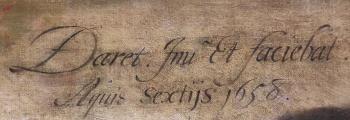 Daret. Inu et faciebat.
Aquis sextijs 1658.